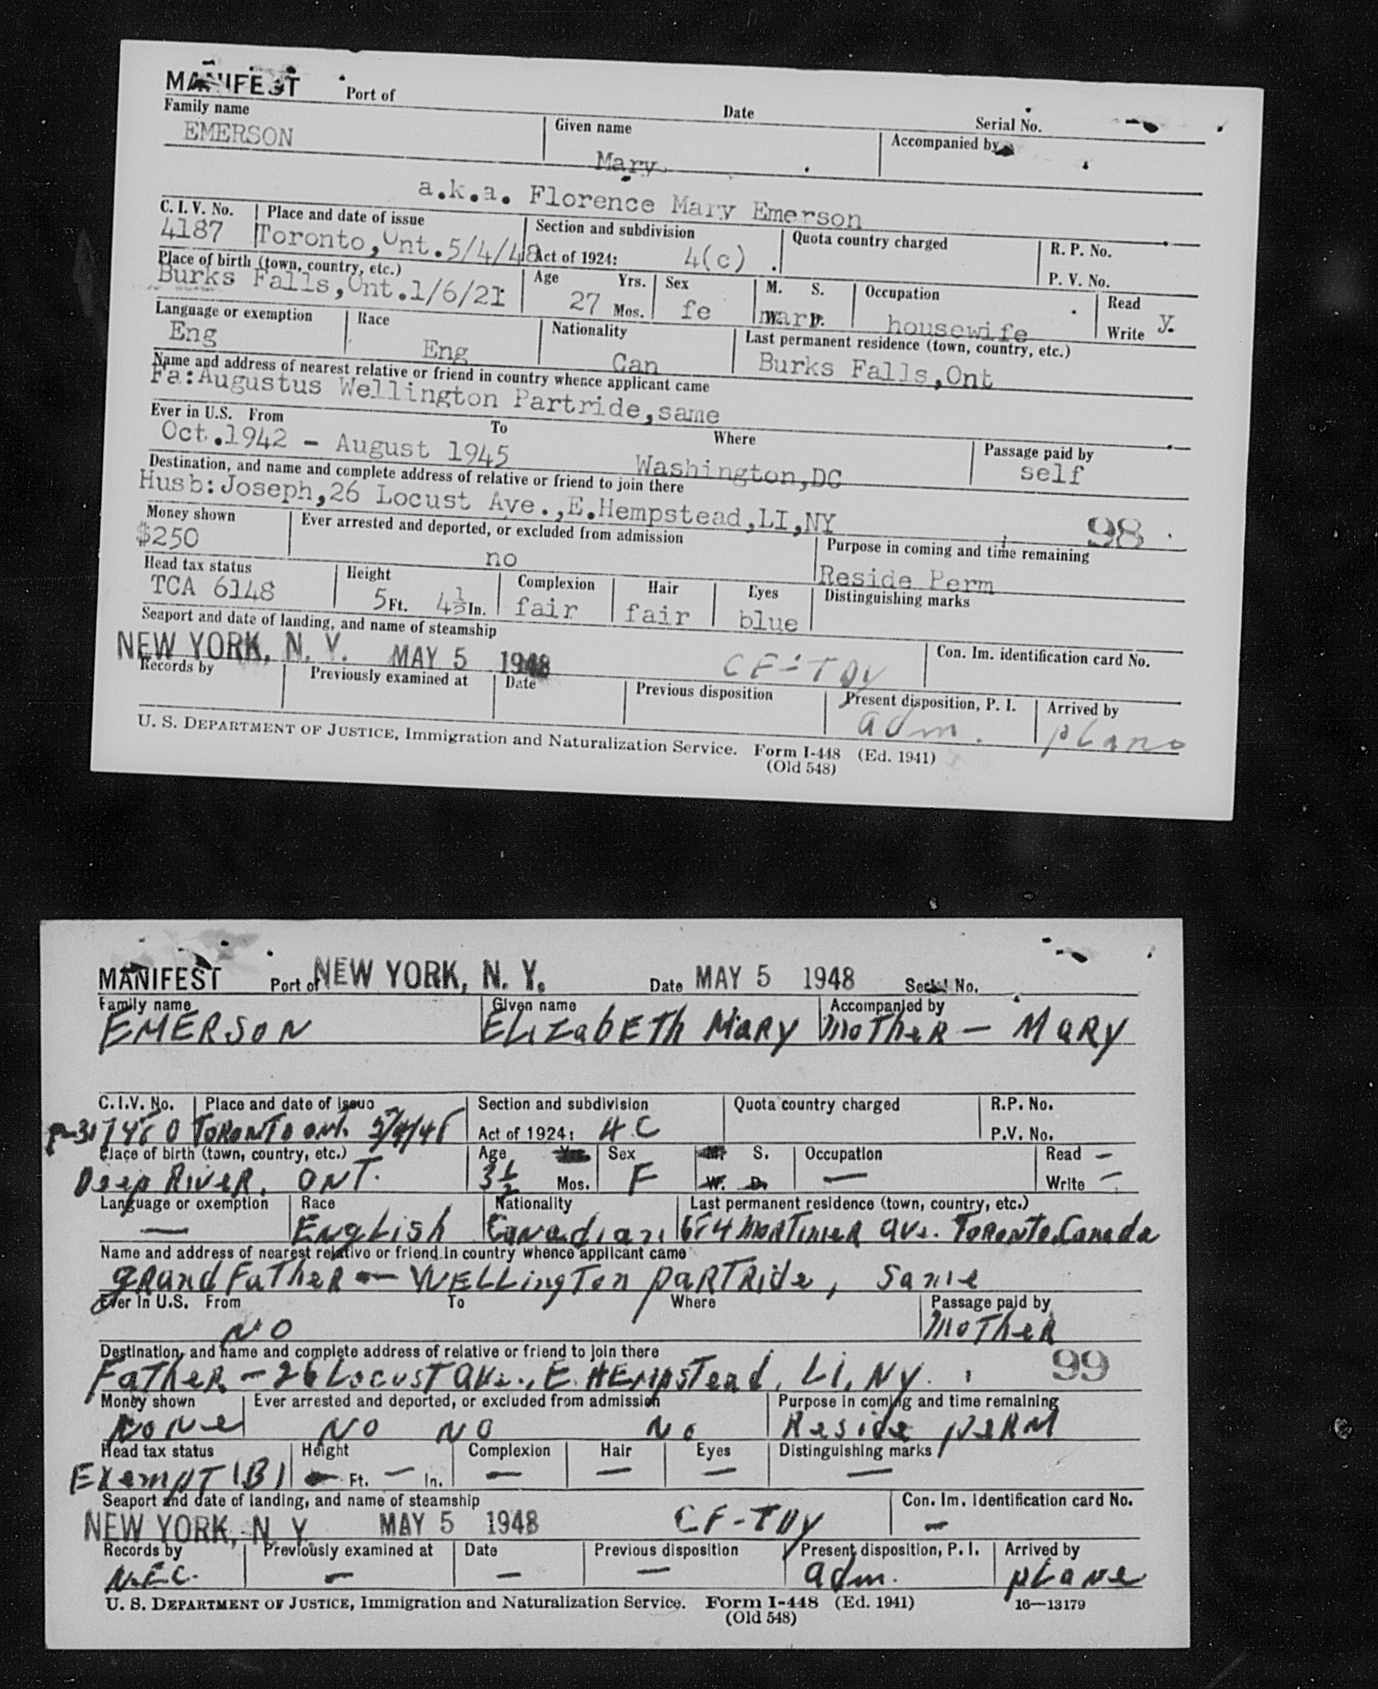 MANIFEST Port of Date Serial No.
Family name Given name Accompanied by
EMERSON Mary
a.k.a. Florence Mary Emerson
C. I. V. No. Place and date of issue Section and subdivision Quota country charged R. P. No.
4187 Toronto, Ont. 5/4/48 Act of 1924: 4(c) P. V. No.
Place of birth (town, country, etc.) Age Yrs. Sex M. S. Occupation Read
Burks Falls, Ont. 1/6/21 27 Mos. fe marr. housewife Write y.
Language or exemption Race Nationality Last permanent residence (town, country, etc.)
Eng Eng Can Burks Falls, Ont
Name and address of nearest relative or friend in country whence applicant came
Fa: Augustus Wellington Partride, same
Ever in U.S. From To Where Passage paid by
Oct. 1942 - August 1945 Washington, DC self
Destination, and name and complete address of relative or friend to join there
Husb: Joseph, 26 Locust Ave., E. Hempstead, LI, NY 98
Money shown Ever arrested and deported, or excluded from admission Purpose in coming and time remaining
$250 no Reside Perm
Head tax status Height Complexion Hair Eyes Distinguishing marks
TCA 6148 5 Ft. 4½ In. fair fair blue
Seaport and date of landing, and name of steamship Con. Im. identification card No.
NEW YORK, N. Y. MAY 5 1948 CF-TDY
Records by Previously examined at Date Previous disposition Present disposition, P. I. Arrived by
adm. plane
U. S. DEPARTMENT OF JUSTICE, Immigration and Naturalization Service. Form I-448 (Ed. 1941)
(Old 548)
MANIFEST Port of NEW YORK, N. Y. Date MAY 5 1948 Serial No.
Family name Given name Accompanied by
EMERSON ELIzabETh MARY MoTheR - MARY
C.I.V. No. Place and date of issue Section and subdivision Quota country charged R.P. No.
TORONTO ONT. Act of 1924: 4 C P.V. No.
Place of birth (town, country, etc.) Age Yrs. Sex M. S. Occupation Read -
Deep RiveR, ONT. 3½ Mos. F W. D. - Write -
Language or exemption Race Nationality Last permanent residence (town, country, etc.)
- English Canadian MORTIMER ave. TORONTO, Canada
Name and address of nearest relative or friend in country whence applicant came
gRandFaTheR - WELLingTon paRTRide, Same
Ever in U.S. From To Where Passage paid by
NO MoTheR
Destination, and name and complete address of relative or friend to join there
FaTheR - 26 Locust ave., E. HEmpsTead, LI, NY. 99
Money shown Ever arrested and deported, or excluded from admission Purpose in coming and time remaining
None NO NO No Reside peRM
Head tax status Height Complexion Hair Eyes Distinguishing marks
ExempT (B) - Ft. - In. - - - -
Seaport and date of landing, and name of steamship Con. Im. identification card No.
NEW YORK, N. Y. MAY 5 1948 CF-TDY -
Records by Previously examined at Date Previous disposition Present disposition, P. I. Arrived by
N.E.C. - - - adm. plane
U. S. DEPARTMENT OF JUSTICE, Immigration and Naturalization Service. Form I-448 (Ed. 1941) 16—13179
(Old 548)